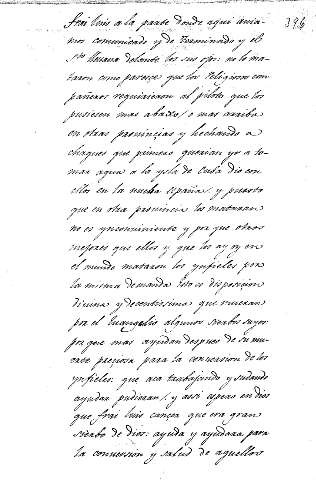 396
frai luis a la parte donde aqui avia-
mos comunicado y de terminado y el
delante los sus ojos no lo ma-
taron como parece que los Religiosos com-
pañeros requirieron al piloto que los
pusiesen mas abaxo, o mas arriba
en otras provincias y hechando a
chaques que primero querian yr a to-
mar agua a la ysla de Cuba dio con
ellos en la nueba españa, y puesto
que en otra provincia los mataran
no es ynconviniente y por que otros
mejores que ellos y que los ay oy en
el mundo mataron los ynfieles por
la misma demanda esto es disposicion
divina y decentissima que mueran
por el Evangelio algunos sierbos suyos
por que mas ayudan despues de su mu-
erte preciosa para la conversion de los
ynfieles: que aca trabajando y sudando
ayudar pudieran, y assi espero en dios
que frai luis cancer que era gran
sierbo de dios: ayuda y ayudara para
la conversion y salud de aquellos